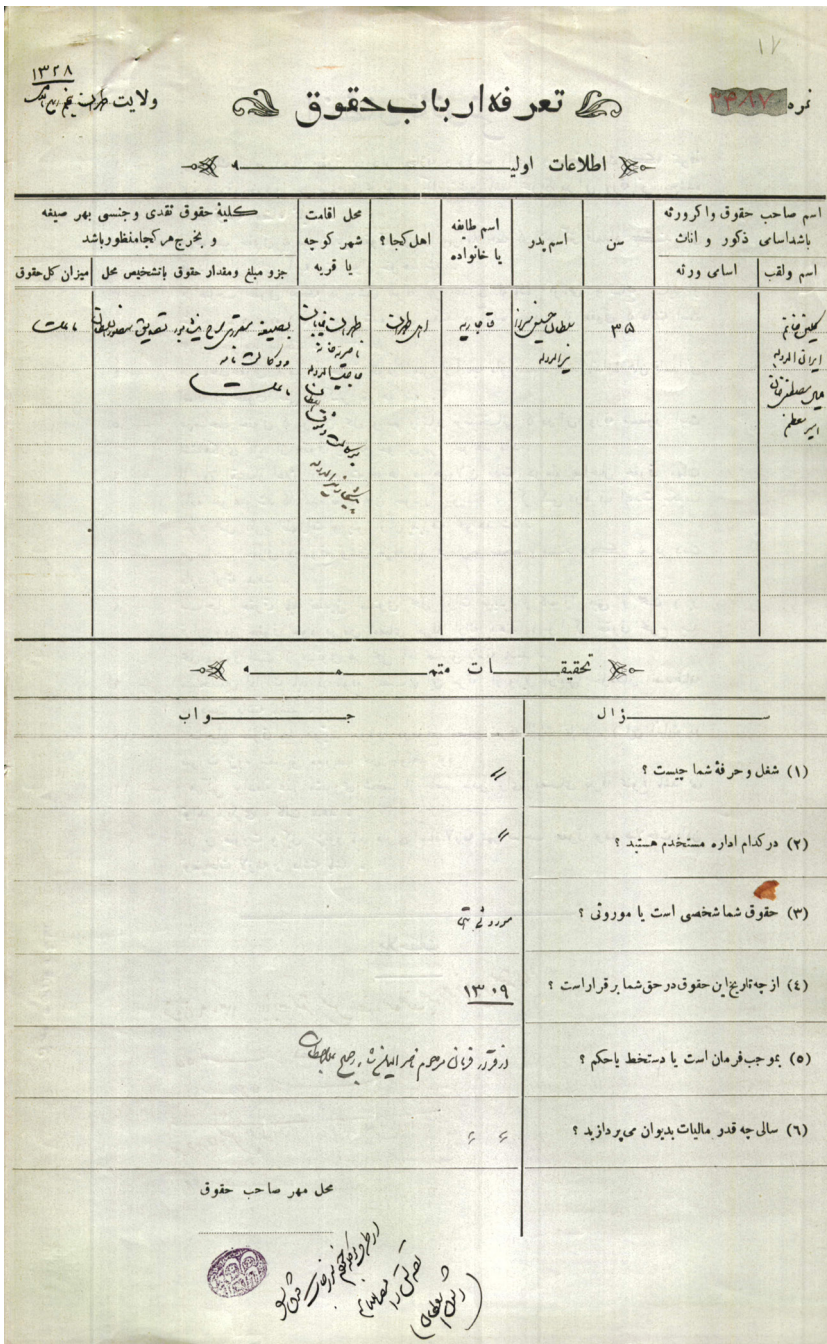 ۱۷
نمره ۲۳۸۷
تعرفهٔ ارباب حقوق
۱۳۲۸
ولایت طهران
اطلاعات اولیه
اسم صاحب حقوق واکرورثه باشد اسامی ذکور و اناث
اسم ولقب
اسامی ورثه
سن
اسم پدر
اسم طایفه یا خانواده
اهل کجا ؟
محل اقامت شهر کوچه یا قریه
کلیهٔ حقوق نقدی و جنسی بهر صیغه و بخرج هر کجا منظور باشد
جزو مبلغ ومقدار حقوق باتشخیص محل
میزان کل حقوق
خانم
ایران الدوله
عیال مصطفی خان
امیر معظم
۳۵
سلطان حسین میرزا
نیرالدوله
قاجاریه
اهل طهران
طهران خیابان
ناصریه خانه
بصیغه مستمری بخرج نیشابور تصدیق
ووکالت نامه
تحقیقات متمـمه
سـؤال
جـواب
(۱) شغل و حرفهٔ شما چیست ؟
〃
(۲) در کدام اداره مستخدم هستید ؟
〃
(۳) حقوق شما شخصی است یا موروثی ؟
موروثی
(٤) از چه تاریخ این حقوق در حق شما بر قرار است ؟
۱۳۰۹
(٥) بموجب فرمان است یا دستخط یا حکم ؟
از قرار فرمان مرحوم ناصرالدین شاه
(٦) سالی چه قدر مالیات بدیوان می پردازید ؟
〃 〃
محل مهر صاحب حقوق